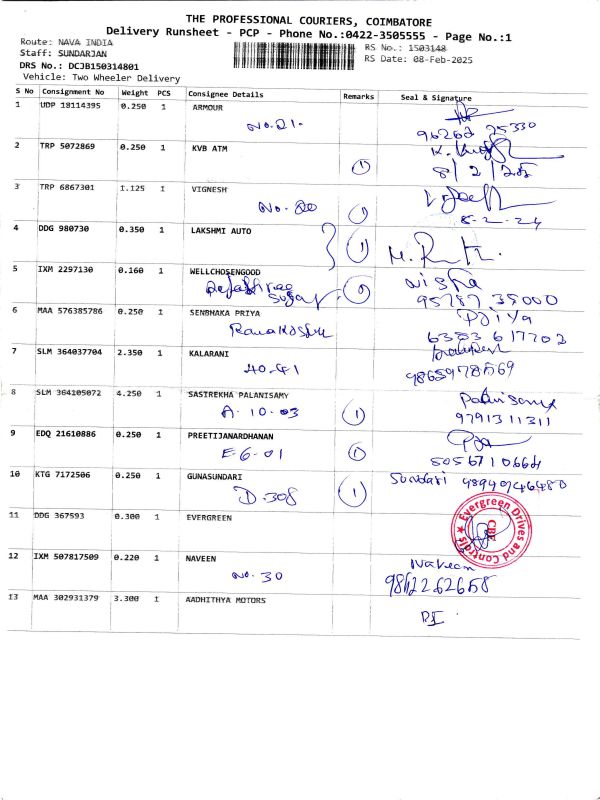 THE PROFESSIONAL COURIERS, COIMBATORE
Delivery Runsheet - PCP - Phone No.:0422-3505555 - Page No.:1
Route: NAVA INDIA
RS No.: 1503148
Staff: SUNDARJAN
RS Date: 08-Feb-2025
DRS No.: DCJB150314801
Vehicle: Two Wheeler Delivery
S No Consignment No Weight PCS Consignee Details Remarks Seal & Signature
1 UDP 18114395 0.250 1 ARMOUR
No. 21.
96262 25330
2 TRP 5072869 0.250 1 KVB ATM
1 8/2/25
3 TRP 6867301 1.125 1 VIGNESH
No. 80 1
8-2-24
4 DDG 980730 0.350 1 LAKSHMI AUTO 1
5 IXM 2297130 0.160 1 WELLCHOSENGOOD
nisha
95787 35000
6 MAA 576385786 0.250 1 SENBHAKA PRIYA
Priya
6383617702
7 SLM 364037704 2.350 1 KALARANI
40-41
8 SLM 364105072 4.250 1 SASTREKHA PALANISAMY
A-10-03 1
9791311311
9 EDQ 21610886 0.250 1 PREETIJANARDHANAN
E-6-01 1
10 KTG 7172506 0.250 1 GUNASUNDARI Sundari
D.308 1
11 DDG 367593 0.300 1 EVERGREEN
Evergreen Drives and Controls ★ CBE
12 IXM 507817509 0.220 1 NAVEEN
Naveen
No. 30
13 MAA 302931379 3.300 1 AADHITHYA MOTORS